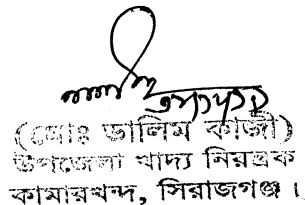 (মোঃ ডালিম কাজী)
উপজেলা খাদ্য নিয়ন্ত্রক
কামারখন্দ, সিরাজগঞ্জ।